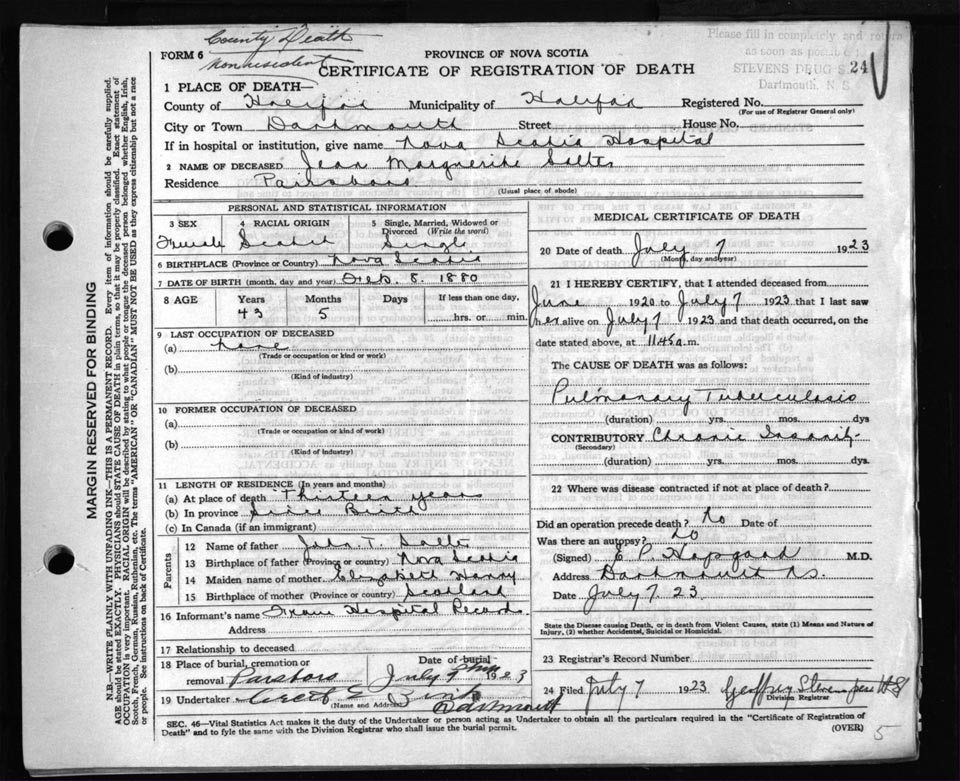 County Death
nonresident
Please fill in completely and return
as soon as possible
STEVENS DRUG S
Dartmouth, N. S.
24
FORM 6
PROVINCE OF NOVA SCOTIA
CERTIFICATE OF REGISTRATION OF DEATH
1 PLACE OF DEATH—
County of Halifax Municipality of Halifax Registered No.
(For use of Registrar General only)
City or Town Dartmouth Street House No.
If in hospital or institution, give name Nova Scotia Hospital
2 NAME OF DECEASED Jean Marguerite Salter
Residence Parrsboro
(Usual place of abode)
PERSONAL AND STATISTICAL INFORMATION
3 SEX 4 RACIAL ORIGIN 5 Single, Married, Widowed or Divorced (Write the word)
Female Scotch Single
6 BIRTHPLACE (Province or Country) Nova Scotia
7 DATE OF BIRTH (month, day and year) Feb. 8. 1880
8 AGE Years Months Days If less than one day,
43 5 hrs. or min.
9 LAST OCCUPATION OF DECEASED
(a) none
(Trade or occupation or kind or work)
(b)
(Kind of industry)
10 FORMER OCCUPATION OF DECEASED
(a)
(Trade or occupation or kind of work)
(b)
(Kind of industry)
11 LENGTH OF RESIDENCE (In years and months)
(a) At place of death Thirteen years
(b) In province Since Birth
(c) In Canada (if an immigrant)
Parents
12 Name of father John T. Salter
13 Birthplace of father (Province or country) Nova Scotia
14 Maiden name of mother Elizabeth
15 Birthplace of mother (Province or country) Scotland
16 Informant's name From Hospital Records.
Address
17 Relationship to deceased
18 Place of burial, cremation or Date of burial
removal Parsboro July 9th 1923
19 Undertaker
(Name and Address) Dartmouth
MEDICAL CERTIFICATE OF DEATH
20 Date of death July 7 1923
(Month, day and year)
21 I HEREBY CERTIFY, that I attended deceased from
June 1920 to July 7 1923 that I last saw
her alive on July 7 1923 and that death occurred, on the
date stated above, at 11.45 a.m.
The CAUSE OF DEATH was as follows:
Pulmonary Tuberculosis
(duration) yrs. mos. dys
CONTRIBUTORY Chronic Insanity
(Secondary)
(duration) yrs. mos. dys.
22 Where was disease contracted if not at place of death?
Did an operation precede death? no Date of
Was there an autopsy? no
(Signed) E. P. Hopgood M.D.
Address Dartmouth NS.
Date July 7. 23.
State the Disease causing Death, or in death from Violent Causes, state (1) Means and Nature of
Injury, (2) whether Accidental, Suicidal or Homicidal.
23 Registrar's Record Number
24 Filed July 7 1923 Geoffrey Stevens
Division Registrar
SEC. 46—Vital Statistics Act makes it the duty of the Undertaker or person acting as Undertaker to obtain all the particulars required in the "Certificate of Registration of
Death" and to fyle the same with the Division Registrar who shall issue the burial permit.
(OVER)
5
MARGIN RESERVED FOR BINDING
N.B.—WRITE PLAINLY WITH UNFADING INK—THIS IS A PERMANENT RECORD. Every item of information should be carefully supplied.
AGE should be stated EXACTLY. PHYSICIANS should STATE CAUSE OF DEATH in plain terms, so that it may be properly classified. Exact statement of
OCCUPATION is very important. RACIAL ORIGIN will be described by stating to what people or tongue the deceased person belonged whether English, Irish,
Scotch, French, German, Russian, Ruthenian, etc. The terms "AMERICAN" OR "CANADIAN" MUST NOT BE USED as they express citizenship but not a race
or people. See instructions on back of Certificate.